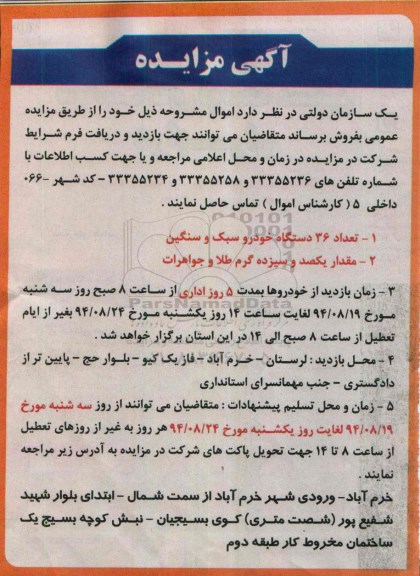 آگهی مزایده
یک سازمان دولتی در نظر دارد اموال مشروحه ذیل خود را از طریق مزایده
عمومی بفروش برساند متقاضیان می توانند جهت بازدید و دریافت فرم شرایط
شرکت در مزایده در زمان و محل اعلامی مراجعه و یا جهت کسب اطلاعات با
شماره تلفن های ۳۳۳۵۵۲۳۶ و ۳۳۳۵۵۲۵۸ و ۳۳۳۵۵۲۳۴ – کد شهر –۰۶۶
داخلی ۵ ( کارشناس اموال ) تماس حاصل نمایند .
۱ – تعداد ۳۶ دستگاه خودرو سبک و سنگین
۲ – مقدار یکصد و سیزده گرم طلا و جواهرات
ParsNamadData
۳ – زمان بازدید از خودروها بمدت ۵ روز اداری از ساعت ۸ صبح روز سه شنبه
مورخ ۹۴/۰۸/۱۹ لغایت ساعت ۱۴ روز یکشنبه مورخ ۹۴/۰۸/۲۴ بغیر از ایام
تعطیل از ساعت ۸ صبح الی ۱۴ در این استان برگزار خواهد شد .
۴ – محل بازدید : لرستان – خرم آباد – فاز یک کیو – بلوار حج – پایین تر از
دادگستری – جنب مهمانسرای استانداری
۵ – زمان و محل تسلیم پیشنهادات : متقاضیان می توانند از روز سه شنبه مورخ
۹۴/۰۸/۱۹ لغایت روز یکشنبه مورخ ۹۴/۰۸/۲۴ هر روز به غیر از روزهای تعطیل
از ساعت ۸ تا ۱۴ جهت تحویل پاکت های شرکت در مزایده به آدرس زیر مراجعه
نمایند .
خرم آباد– ورودی شهر خرم آباد از سمت شمال – ابتدای بلوار شهید
شفیع پور (شصت متری) کوی بسیجیان – نبش کوچه بسیج یک
ساختمان مخروط کار طبقه دوم